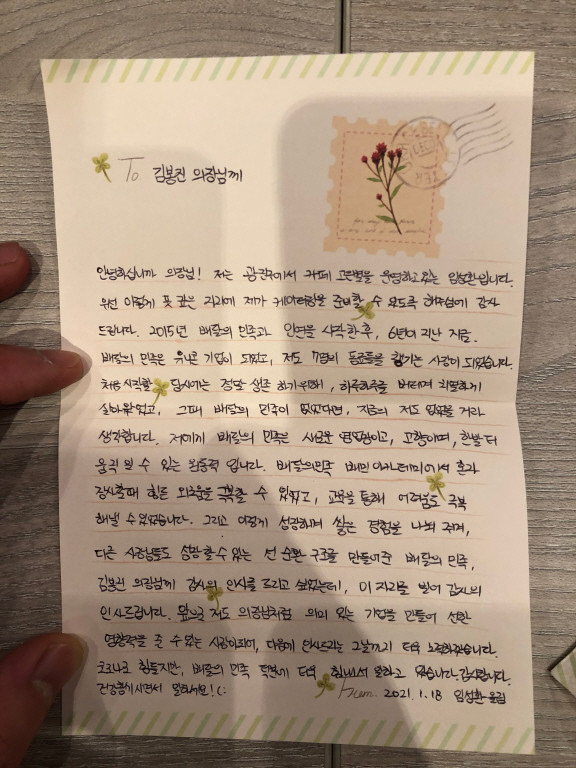 To 김봉진 의장님께
안녕하십니까 의장님! 저는 광진구에서 카페 고르별을 운영하고있는 임성환입니다.
우선 이렇게 뜻 깊은 자리에 제가 케이터링을 준비할 수 있도록 해주심에 감사
드립니다. 2015년 배달의 민족과 인연을 시작한 후, 6년이 지난 지금.
배달의 민족은 유니콘 기업이 되었고, 저도 7명의 동료들을 챙기는 사장이 되었습니다.
처음 시작할 당시에는 정말 생존 하기위해, 하루하루를 버티며 치열하게
살아왔었고, 그때 배달의 민족이 없었다면, 지금의 저도 없었을 거라
생각합니다. 저에게 배달의 민족은 새로운 영업장이고, 고향이며, 한발 더
움직 일 수 있는 원동력 입니다. 배달의민족 배민아카데미에서 혼자
장사할때 힘든 외로움을 극복할 수 있었고, 교육을 통해 어려움도 극복
해낼 수 있었습니다. 그리고 이렇게 성장하며 쌓은 경험을 나눠 주며,
다른 사장님들도 성장할 수 있는 선 순환 구조를 만들어준 배달의 민족,
김봉진 의장님께 감사의 인사를 드리고 싶었는데, 이 자리를 빌어 감사의
인사드립니다. 앞으로 저도 의장님처럼 의미 있는 기업을 만들어 선한
영향력을 줄 수 있는 사람이되어, 다음에 인사드리는 그날까지 더욱 노력하겠습니다.
코로나로 힘들지만, 배달의 민족 덕분에 더욱 힘내서 일하고 있습니다. 감사합니다.
건강챙기시면서 일하세요! (:
From. 2021. 1. 18 임성환 올림